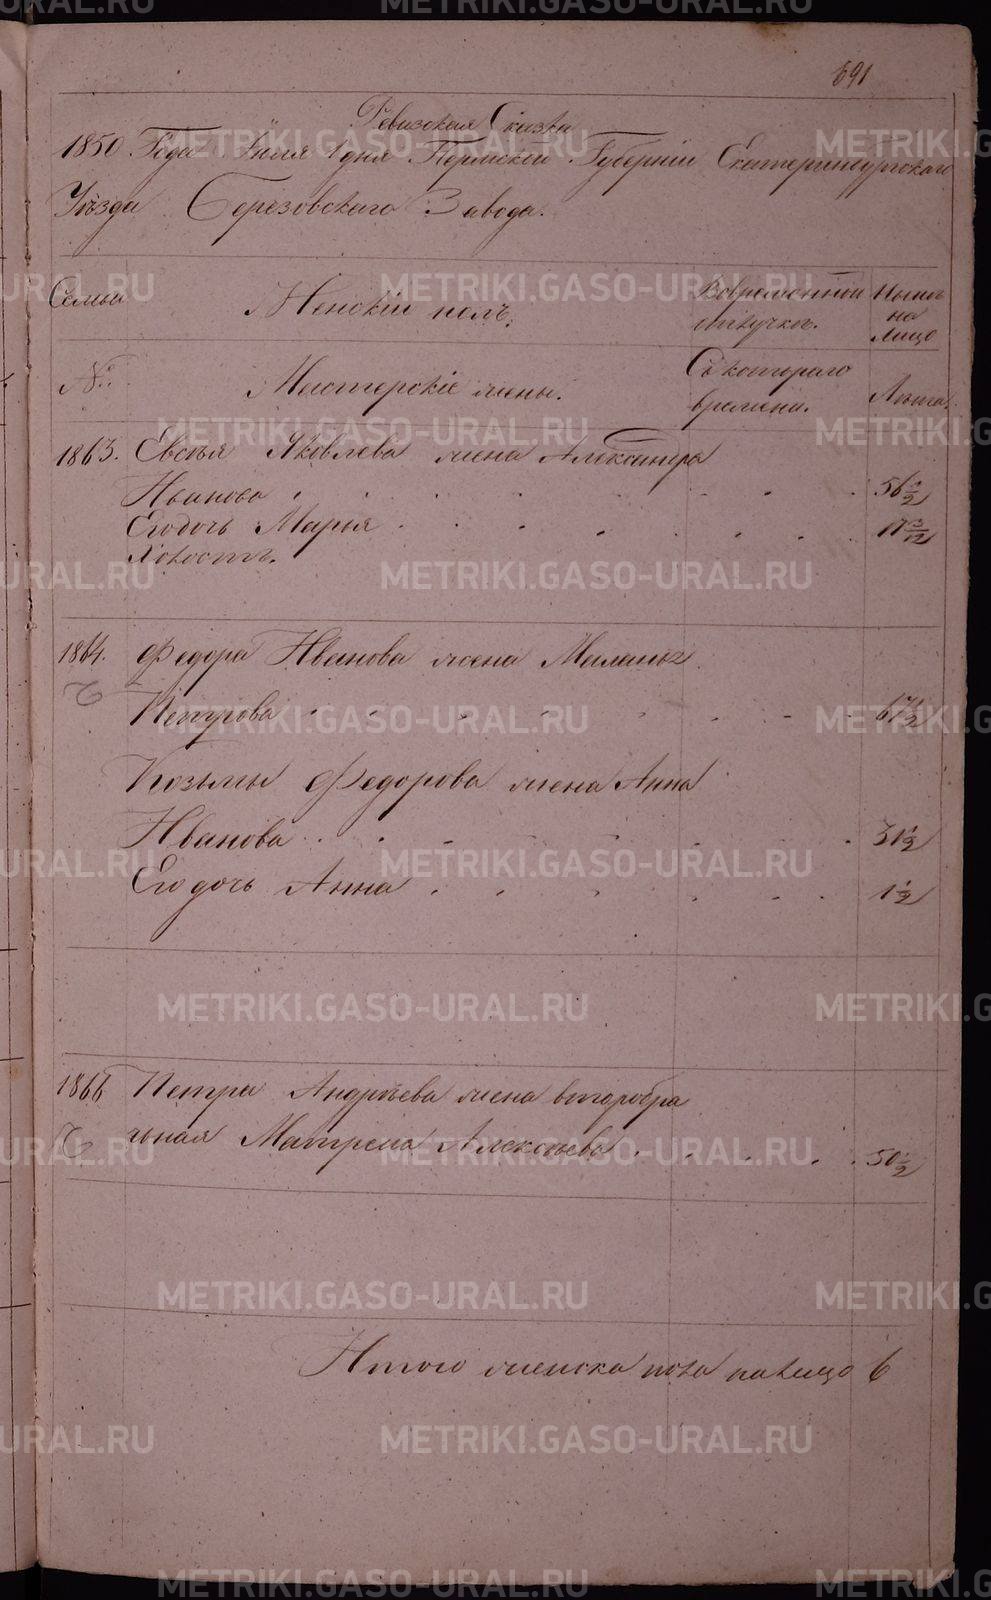 691
Ревизская Сказка
1850 Года Июля 1 дня Пермской Губерніи Екатеринбургскаго
Уѣзда Березовскаго Завода.
Семьи
Женскій полъ.
Во временной
отлучкѣ.
Нынѣ
на
лицо
№
Мастерскіе жены.
Съ котораго
времени.
Лѣта.
1863. Евсѣя Яковлева жена Александра
Иванова 56 1/2
Его дочь Марья 17 3/12
Холостъ.
1864. Федора Иванова жена Маланья
Петрова
Козьмы Федорова жена Анна
Иванова 31 1/2
Его дочь Анна 1 1/2
1866 Петра Андрѣева жена второбра
чьная Матрена Алексѣева 50 1/2
Итого женска пола на лицо 6
METRIKI.GASO-URAL.RU